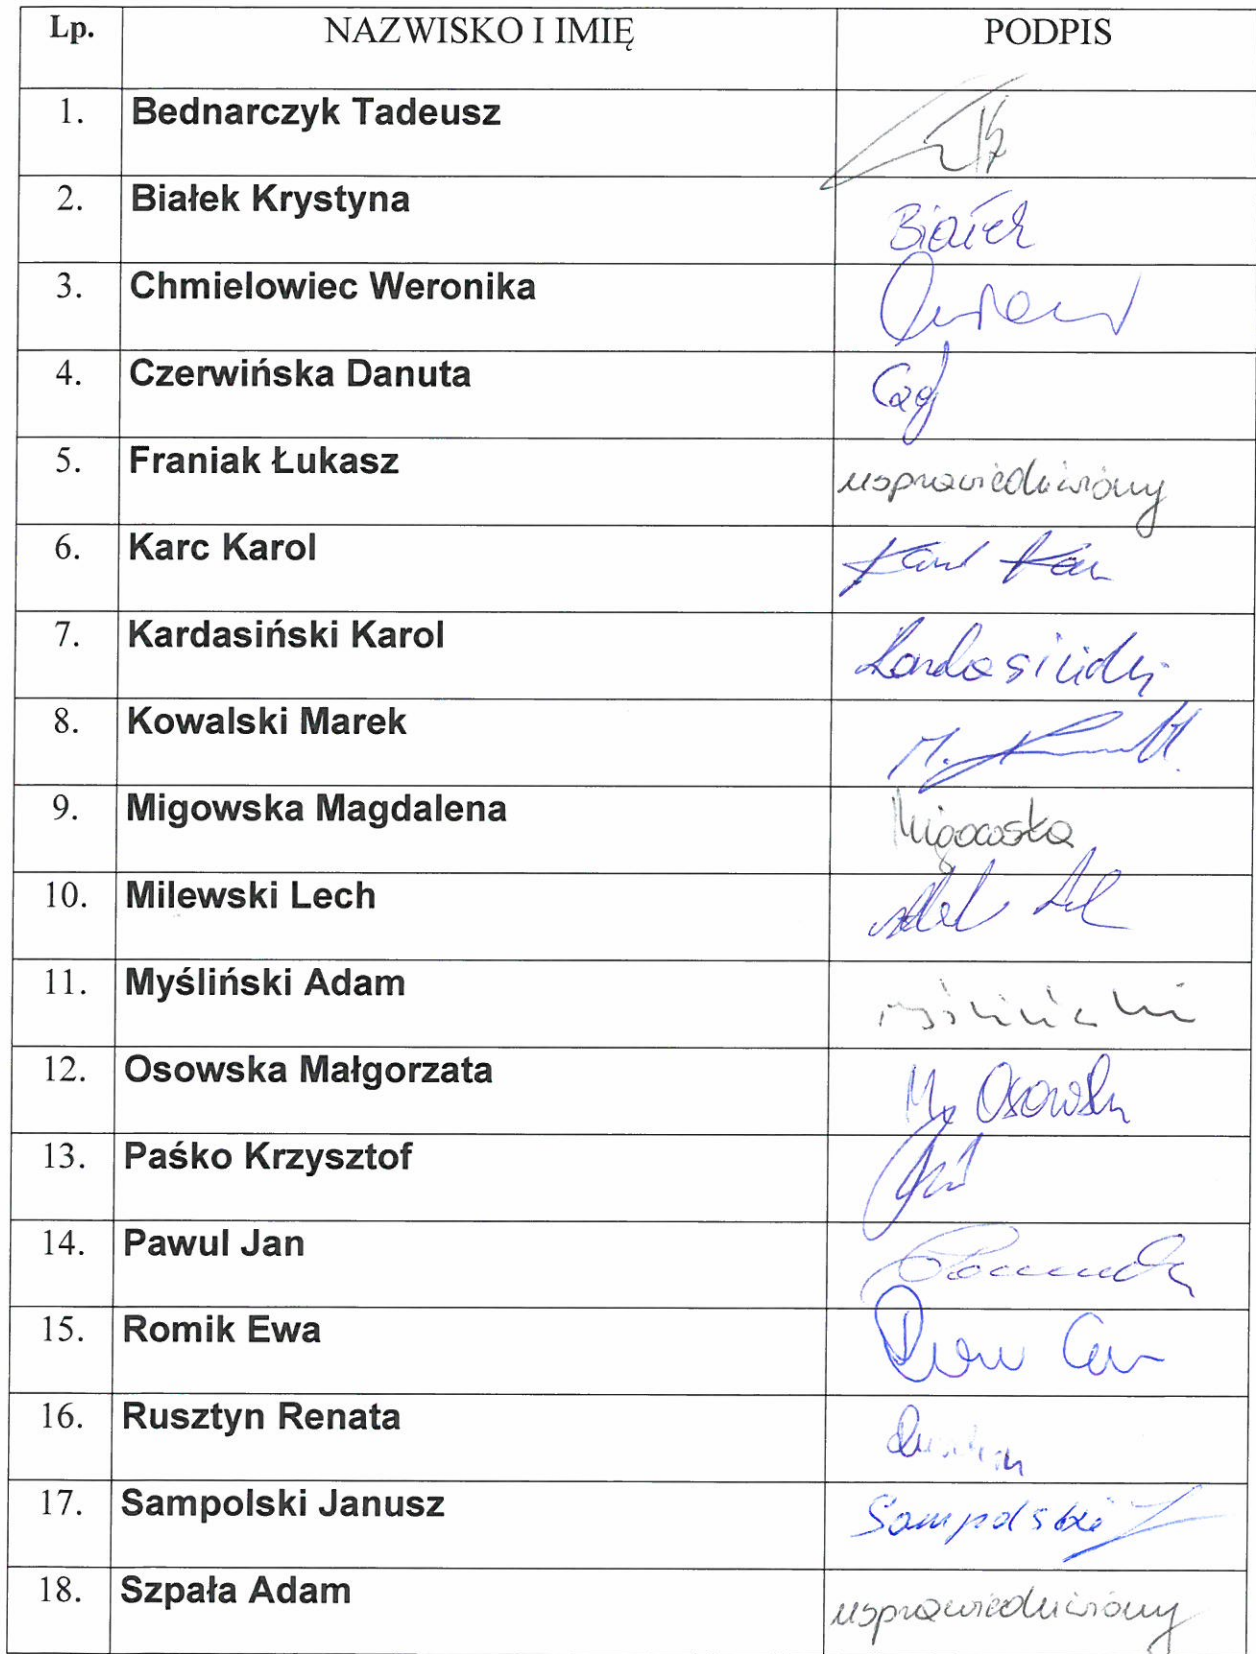 Lp. NAZWISKO I IMIĘ PODPIS
1. Bednarczyk Tadeusz
2. Białek Krystyna Białek
3. Chmielowiec Weronika
4. Czerwińska Danuta
5. Franiak Łukasz usprawiedliwiony
6. Karc Karol
7. Kardasiński Karol Kardasiński
8. Kowalski Marek M.
9. Migowska Magdalena Migowska
10. Milewski Lech
11. Myśliński Adam Myśliński
12. Osowska Małgorzata M. Osowska
13. Paśko Krzysztof
14. Pawul Jan
15. Romik Ewa
16. Rusztyn Renata
17. Sampolski Janusz Sampolski
18. Szpała Adam usprawiedliwiony